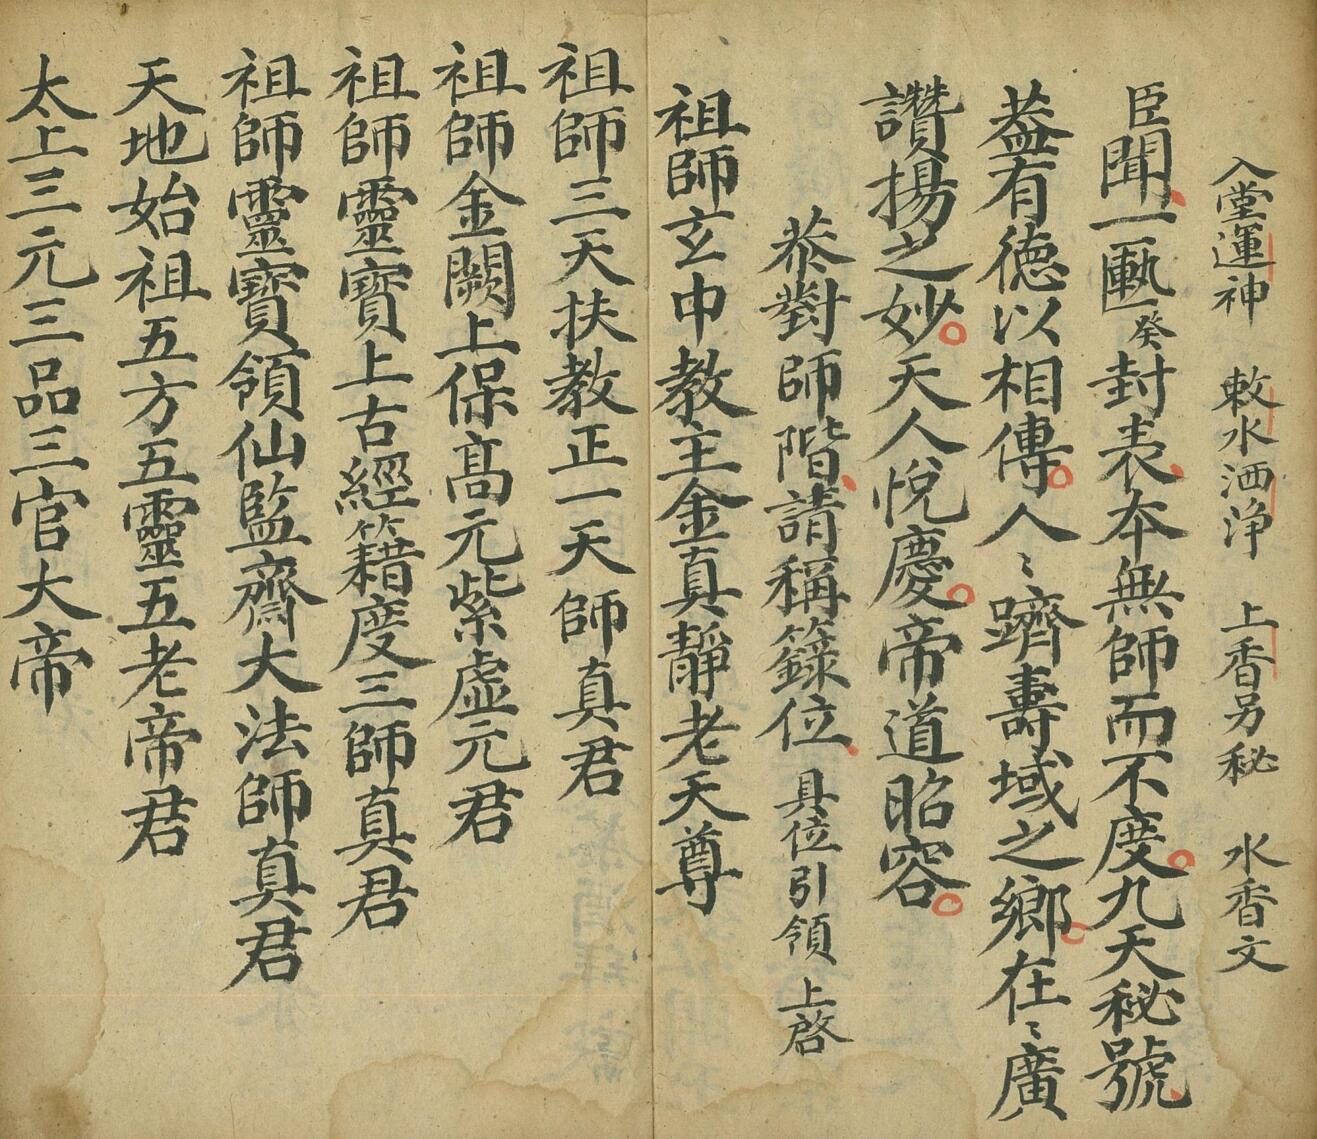 入堂運神　敕水洒浄　上香另秘　水香文
臣聞一匭癸封表夲無師而不度九天秘號
葢有德以相傳人〻躋壽域之鄉在〻廣
讚揚之妙天人悅慶帝道昭容
恭對師階請稱籙位　具位引領　上啓
祖師玄中教主金真靜老天尊
祖師三天扶教正一天師真君
祖師金闕上保髙元紫虛元君
祖師靈寶上古經籍度三師真君
祖師靈寶領仙監齋大法師真君
天地始祖五方五靈五老帝君
太上三元三品三官大帝